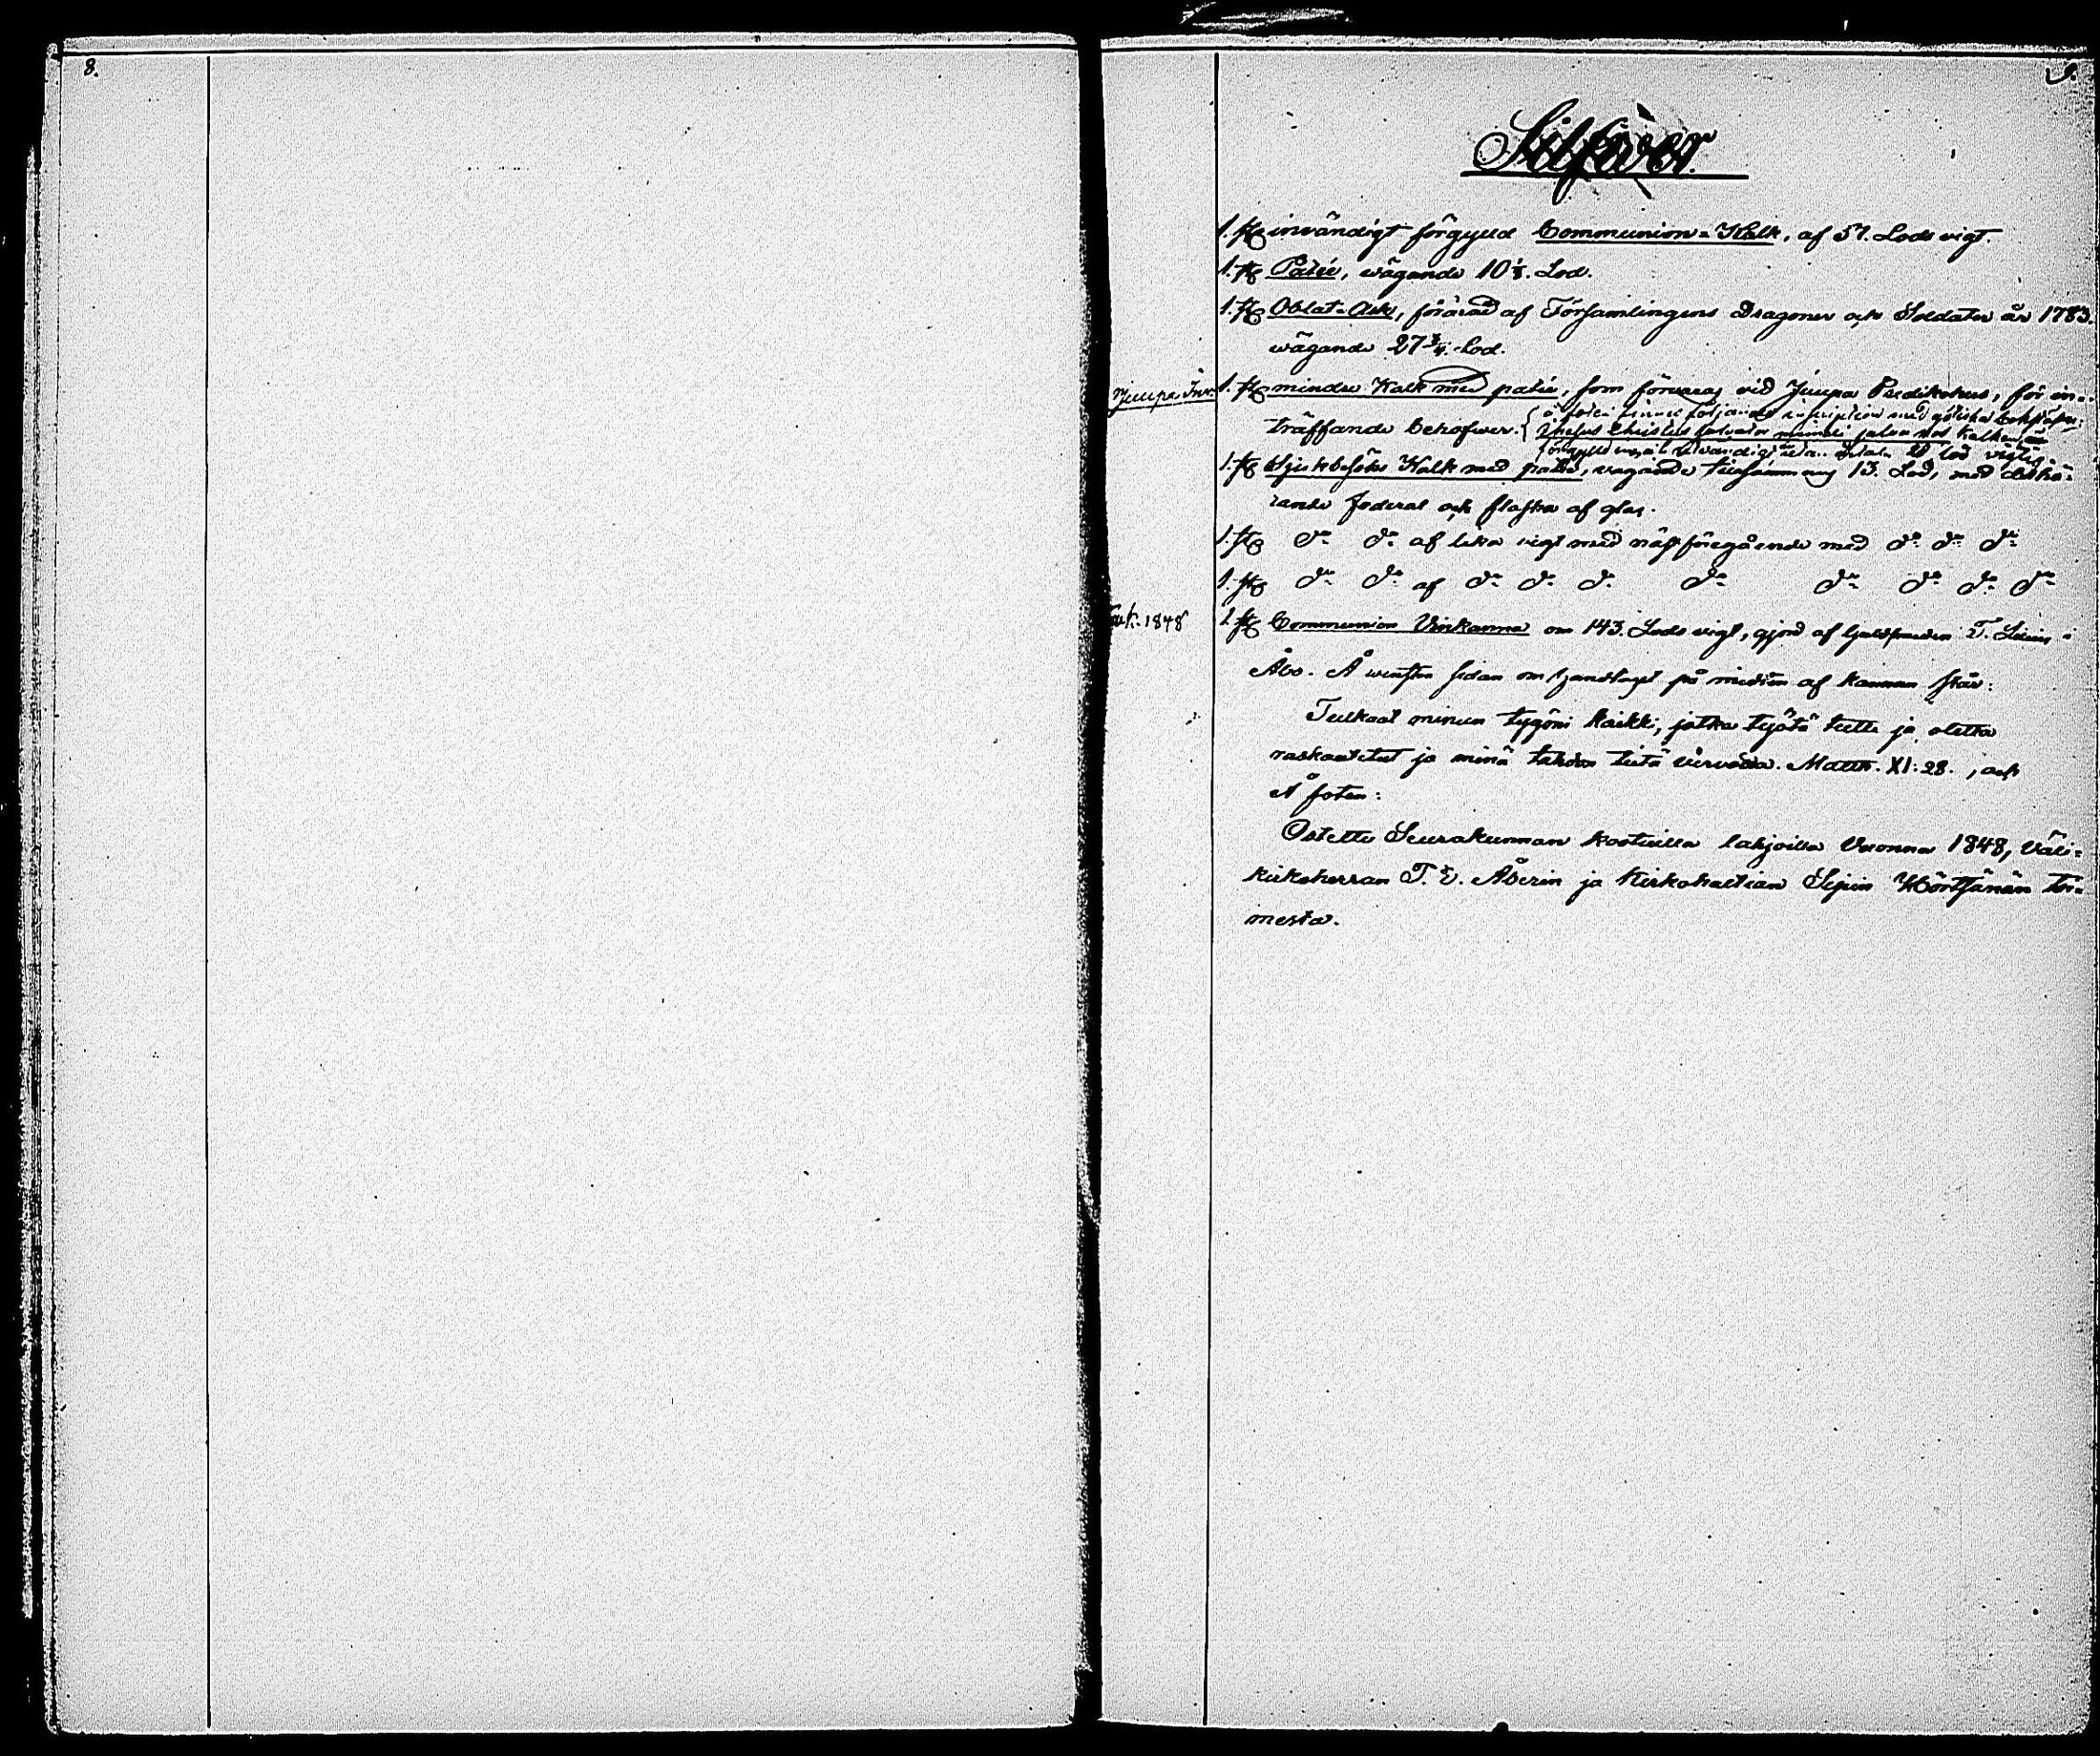 8.
9.
Silfwer.
1. st. invändigt förgyld Communion-Kalk, af 57. Lods vigt.
1. st. Patén, wägande 10 1/8. Lod.
1. st. Oblat-Ask, förärad af Församlingens Dragoner och Soldater år 1783.
wägande 27 3/4. Lod.
Juupa Inv.
1. st. mindre Kalk med patén, som förvaras vid Juupa Predikohus, för in-
träffande behofwer.
å foten finnes följande inscription med götiska bokstäfver:
Jhesus Christus salvator mundi salva nos Kalken är
förgylld invändigt 20 lod vigtig
1. st. Sjukbesöks Kalk med patén, vägande tillsammans 13. Lod, med dithö-
rande foderal och flaska af glas.
1. st. do do af lika vigt med nästföregående med do do do
1. st. do do af do do do do do do do do
Ink. 1848
1. st. Communion Vinkanna om 143. Lods vigt, gjord af Guldsmeden T. i
Åbo. Å wenstra sidan om handtaget på midten af kannan står:
Tulkaat minun tygöni kaikki, jotka työtä teette ja oletta
raskautetut ja minä tahdon teitä virvotta. Matth. XI: 28., och
Å foten:
Ostettu Seurakunnan kootuilla lahjoilla Vuonna 1848, Väli-
kirkoherran T. E. Åberin ja Kirkohaltian Sepin Hörtsänän toi-
mesta.